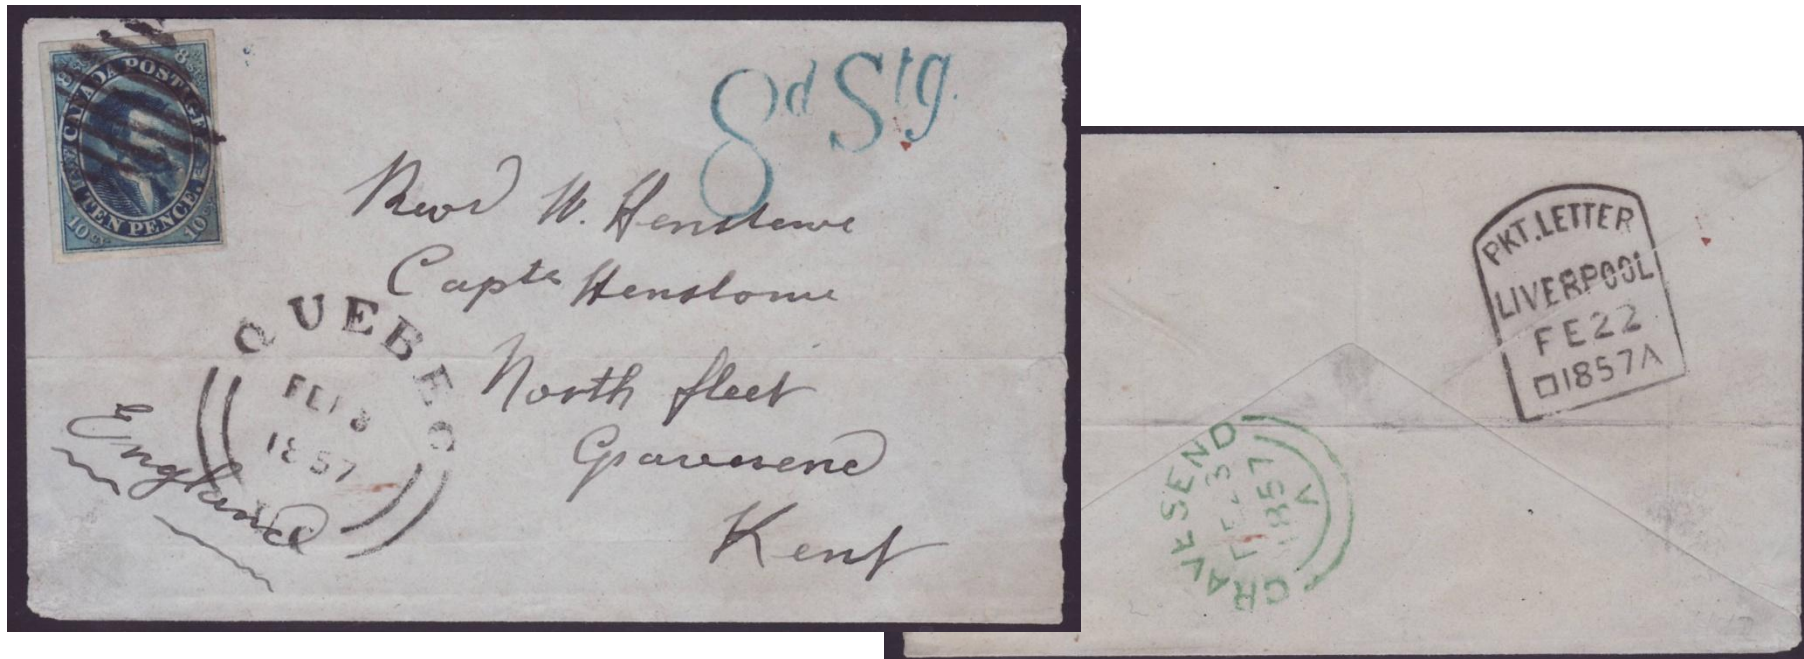 CANADA POSTAGE
TEN PENCE
8
10 10
8d Stg.
Revd W. Henslowe
Capts Henslowe
North fleet
Gravesend
Kent
England
QUEBEC
FE
1857
PKT. LETTER
LIVERPOOL
FE 22
1857A
GRAVESEND
FE 23
1857
A